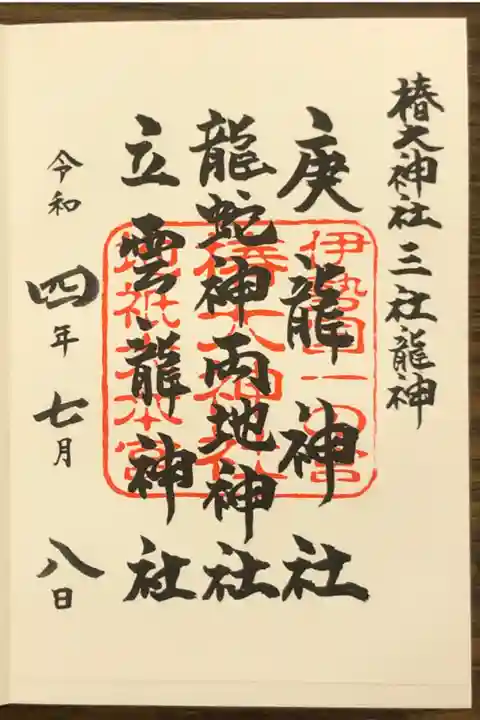 椿大神社三社龍神
庚龍神社
龍蛇神両地神社
立雲龍神社
令和四年七月八日
伊勢国一の宮
椿大神社
地祇大本宮